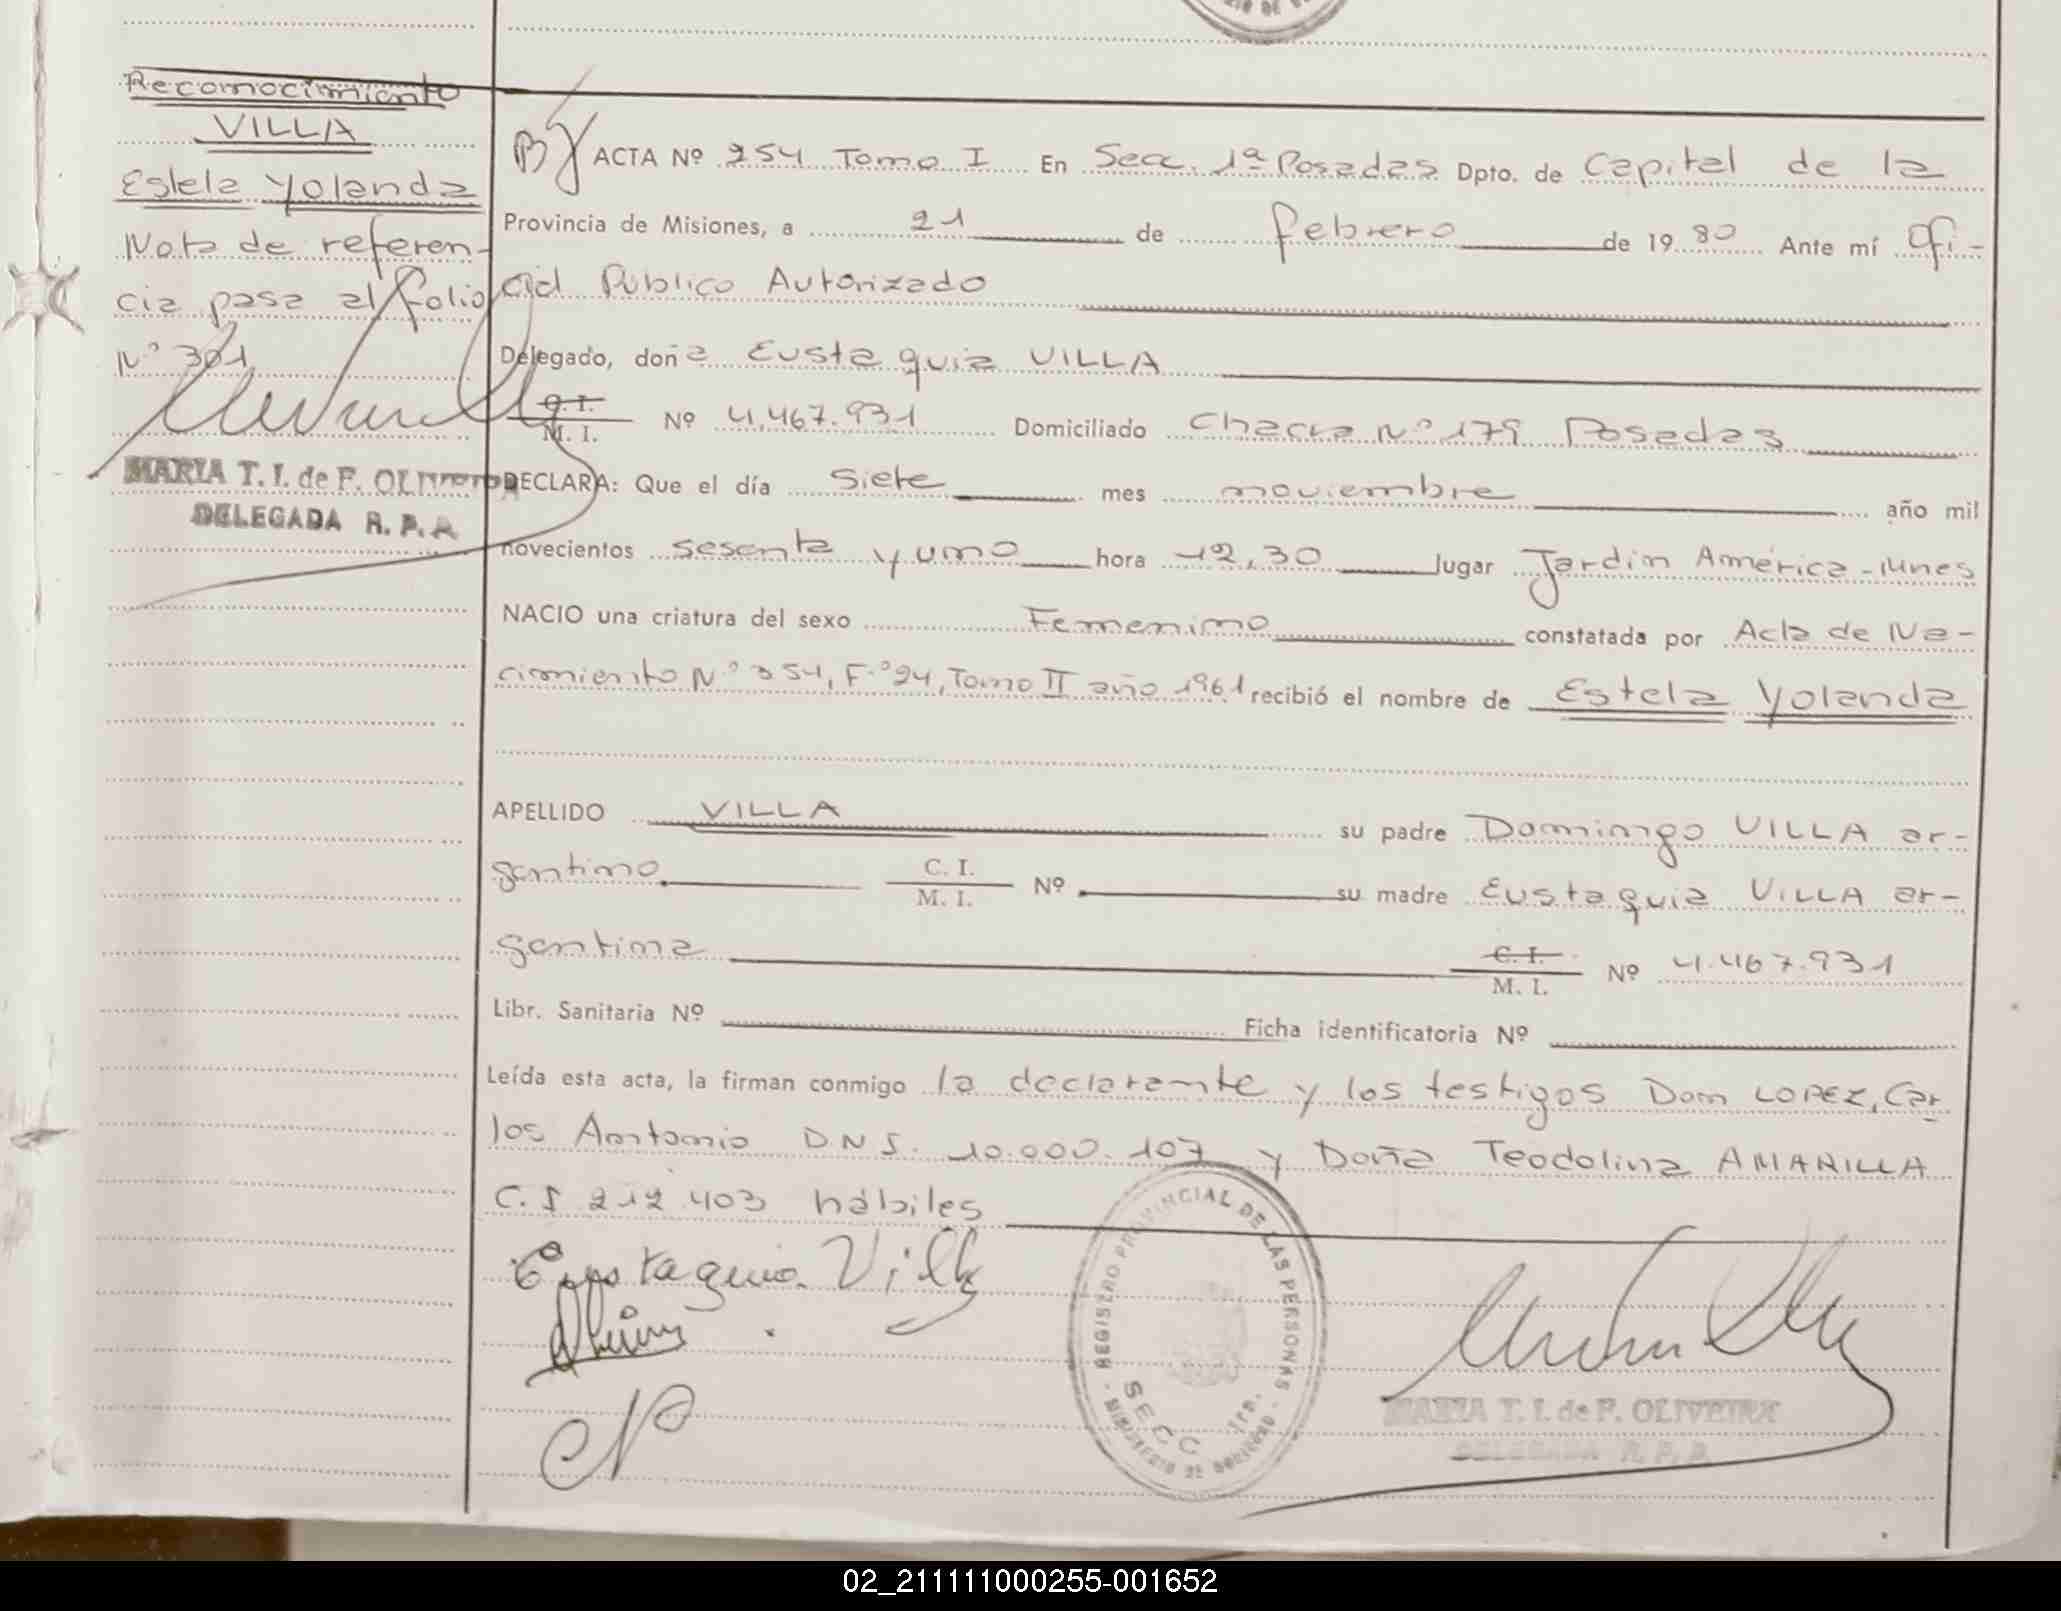 Reconocimiento
VILLA
Estela Yolanda
Nota de referen-
cia pasa al folio
Nº 301
MARIA T. I. de F. OLIVEIRA
DELEGADA R. P. P.
ACTA Nº 254 Tomo I En Secc. 1ª Posadas Dpto. de Capital de la
Provincia de Misiones, a 21 de febrero de 1980 Ante mí Ofi-
cial Público Autorizado
Delegado, doña Eustaquia VILLA
C. I.
M. I. Nº 4.467.931 Domiciliado Chacra Nº 179 Posadas
DECLARA: Que el día Siete mes noviembre año mil
novecientos sesenta y uno hora 12,30 lugar Jardín América-Mnes
NACIO una criatura del sexo Femenino constatada por Acta de Na-
cimiento Nº 354, Fº 24, Tomo II año 1961 recibió el nombre de Estela Yolanda
APELLIDO VILLA su padre Domingo VILLA ar-
gentino C. I.
M. I. Nº su madre Eustaquia VILLA ar-
gentina C. I.
M. I. Nº 4.467.931
Libr. Sanitaria Nº Ficha identificatoria Nº
Leída esta acta, la firman conmigo la declarante y los testigos Don LOPEZ, Car
los Antonio D.N.I. 10.000.107 y Doña Teodolina AMARILLA
C.I 212.403 hábiles
Eustaquia Villa
REGISTRO PROVINCIAL DE LAS PERSONAS
SECC. 1ra.
MINISTERIO DE GOBIERNO
MARIA T. I. de F. OLIVEIRA
DELEGADA R. P. P.
02_211111000255-001652